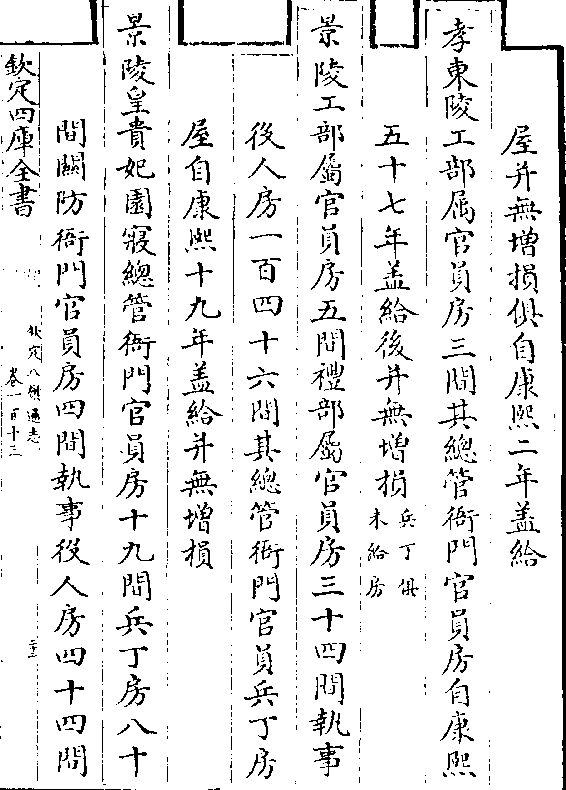 屋并無增損俱自康熙二年盖給
孝東陵工部属官員房三間其總管衙門官員房自康熙
五十七年盖給後并無增損兵丁俱
未給房
景陵工部屬官員房五間禮部屬官員房三十四間執事
役人房一百四十六間其總管衙門官員兵丁房
屋自康熙十九年盖給并無增損
景陵皇貴妃園寢總管衙門官員房十九間兵丁房八十
間關防衙門官員房四間執事役人房四十四間
欽定四庫全書
欽定八旗通志
卷一百十三
二十三